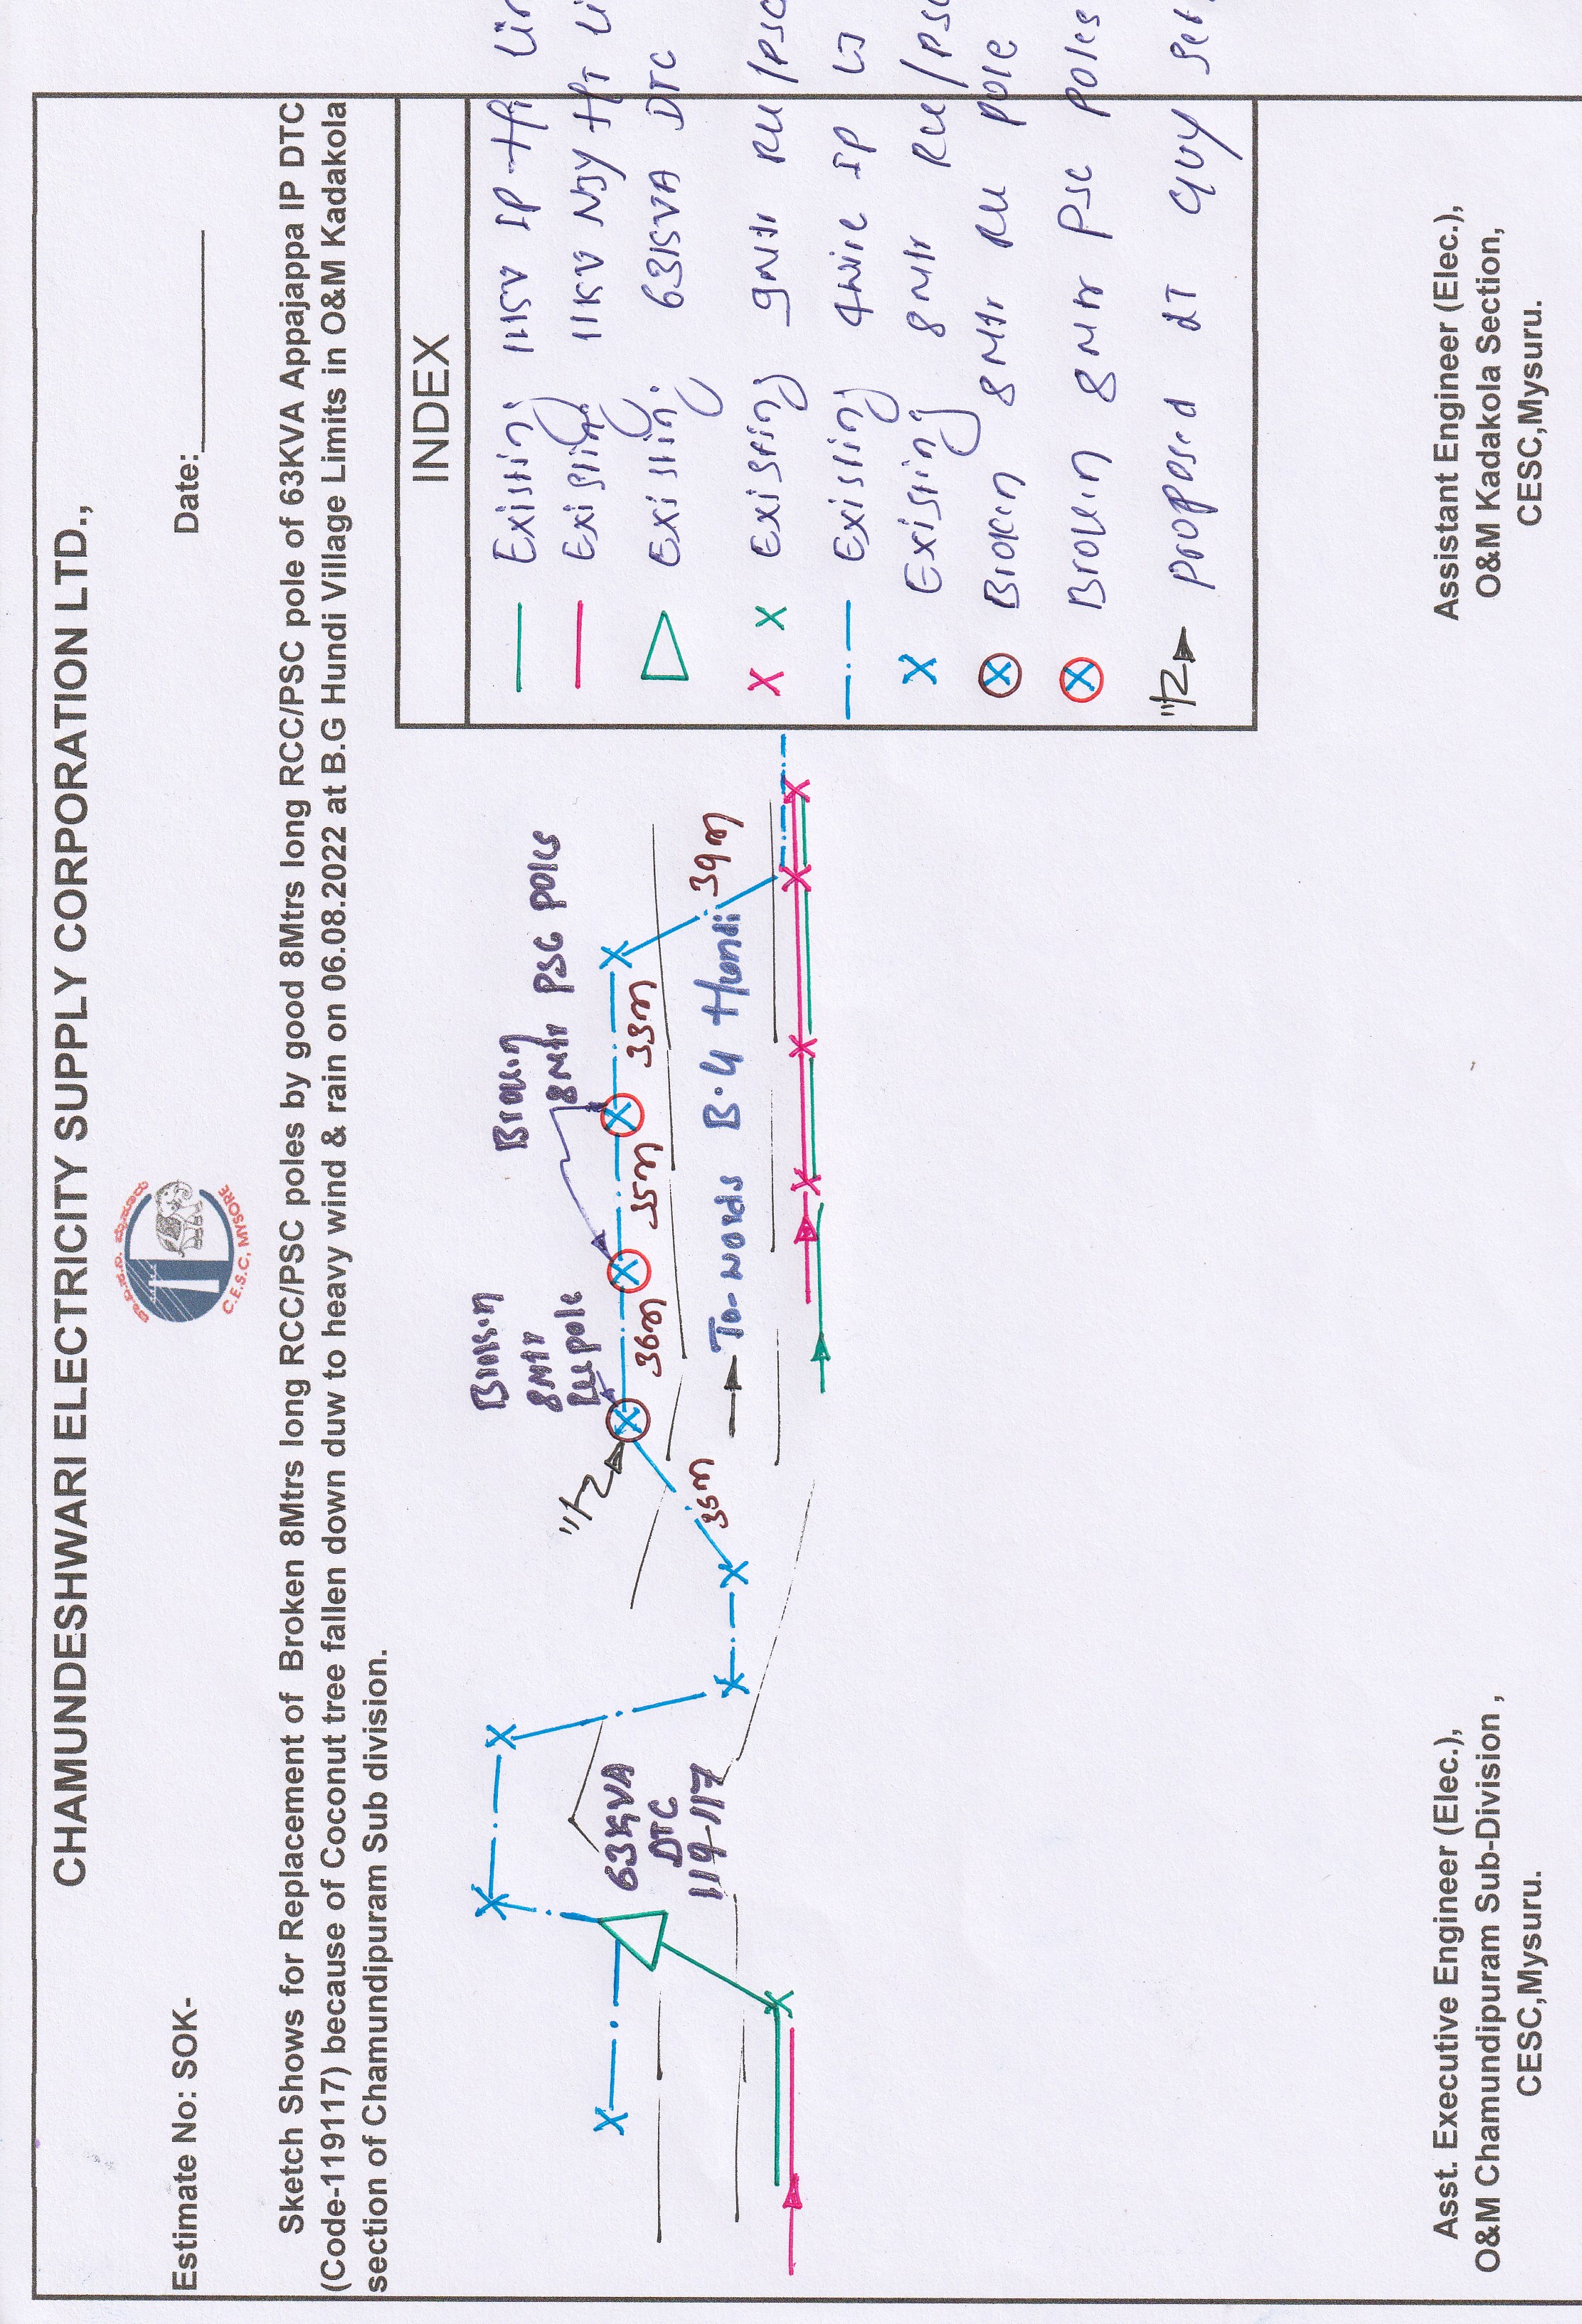 CHAMUNDESHWARI ELECTRICITY SUPPLY CORPORATION LTD.,
C.E.S.C, MYSORE
Estimate No: SOK-
Date:
Sketch Shows for Replacement of Broken 8Mtrs long RCC/PSC poles by good 8Mtrs long RCC/PSC pole of 63KVA Appajappa IP DTC
(Code-119117) because of Coconut tree fallen down duw to heavy wind & rain on 06.08.2022 at B.G Hundi Village Limits in O&M Kadakola
section of Chamundipuram Sub division.
INDEX
Existing 11KV IP HT Lin
Existing 11KV NJY HT Li
Existing 63KVA DTC
Existing 9Mtr RCC/PSC
Existing 4wire IP LT
Existing 8Mtr RCC/PSC
Broken 8Mtr RCC Pole
Broken 8Mtr PSC Poles
Proposed LT Guy Set
Broken
8Mtr PSC Poles
Broken
8Mtr
RCC pole
63KVA
DTC
119-117
35m
36m
35m
33m
39m
To-wards B.G Hundi
Asst. Executive Engineer (Elec.),
O&M Chamundipuram Sub-Division ,
CESC,Mysuru.
Assistant Engineer (Elec.),
O&M Kadakola Section,
CESC,Mysuru.